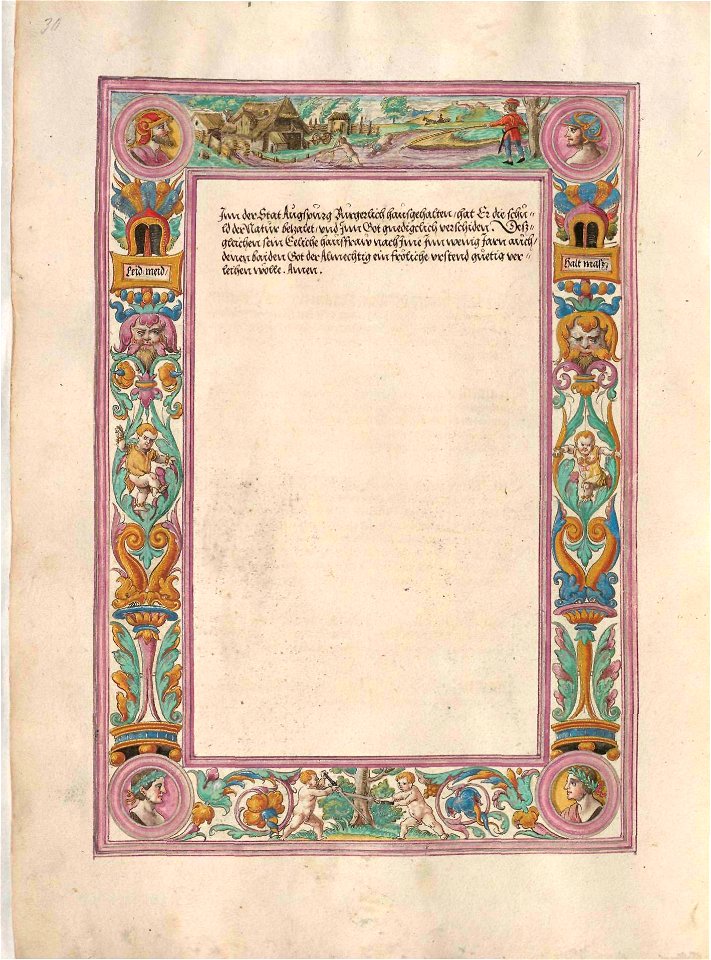 30
Inn der Stat Augspurg Burgerlich hausgehalten, hat Er die schu-
ld der Natur bezalet, und Inn Got gnedigclich verschiden. Deß-
gleichen sein Eeliche hausfraw nach Jme jnn wenig jarn auch,
denen baiden Got der Almechtig ein fröliche vrstend güetig ver-
leihen wölle. Amen.
Leid: meid,
Halt mass,